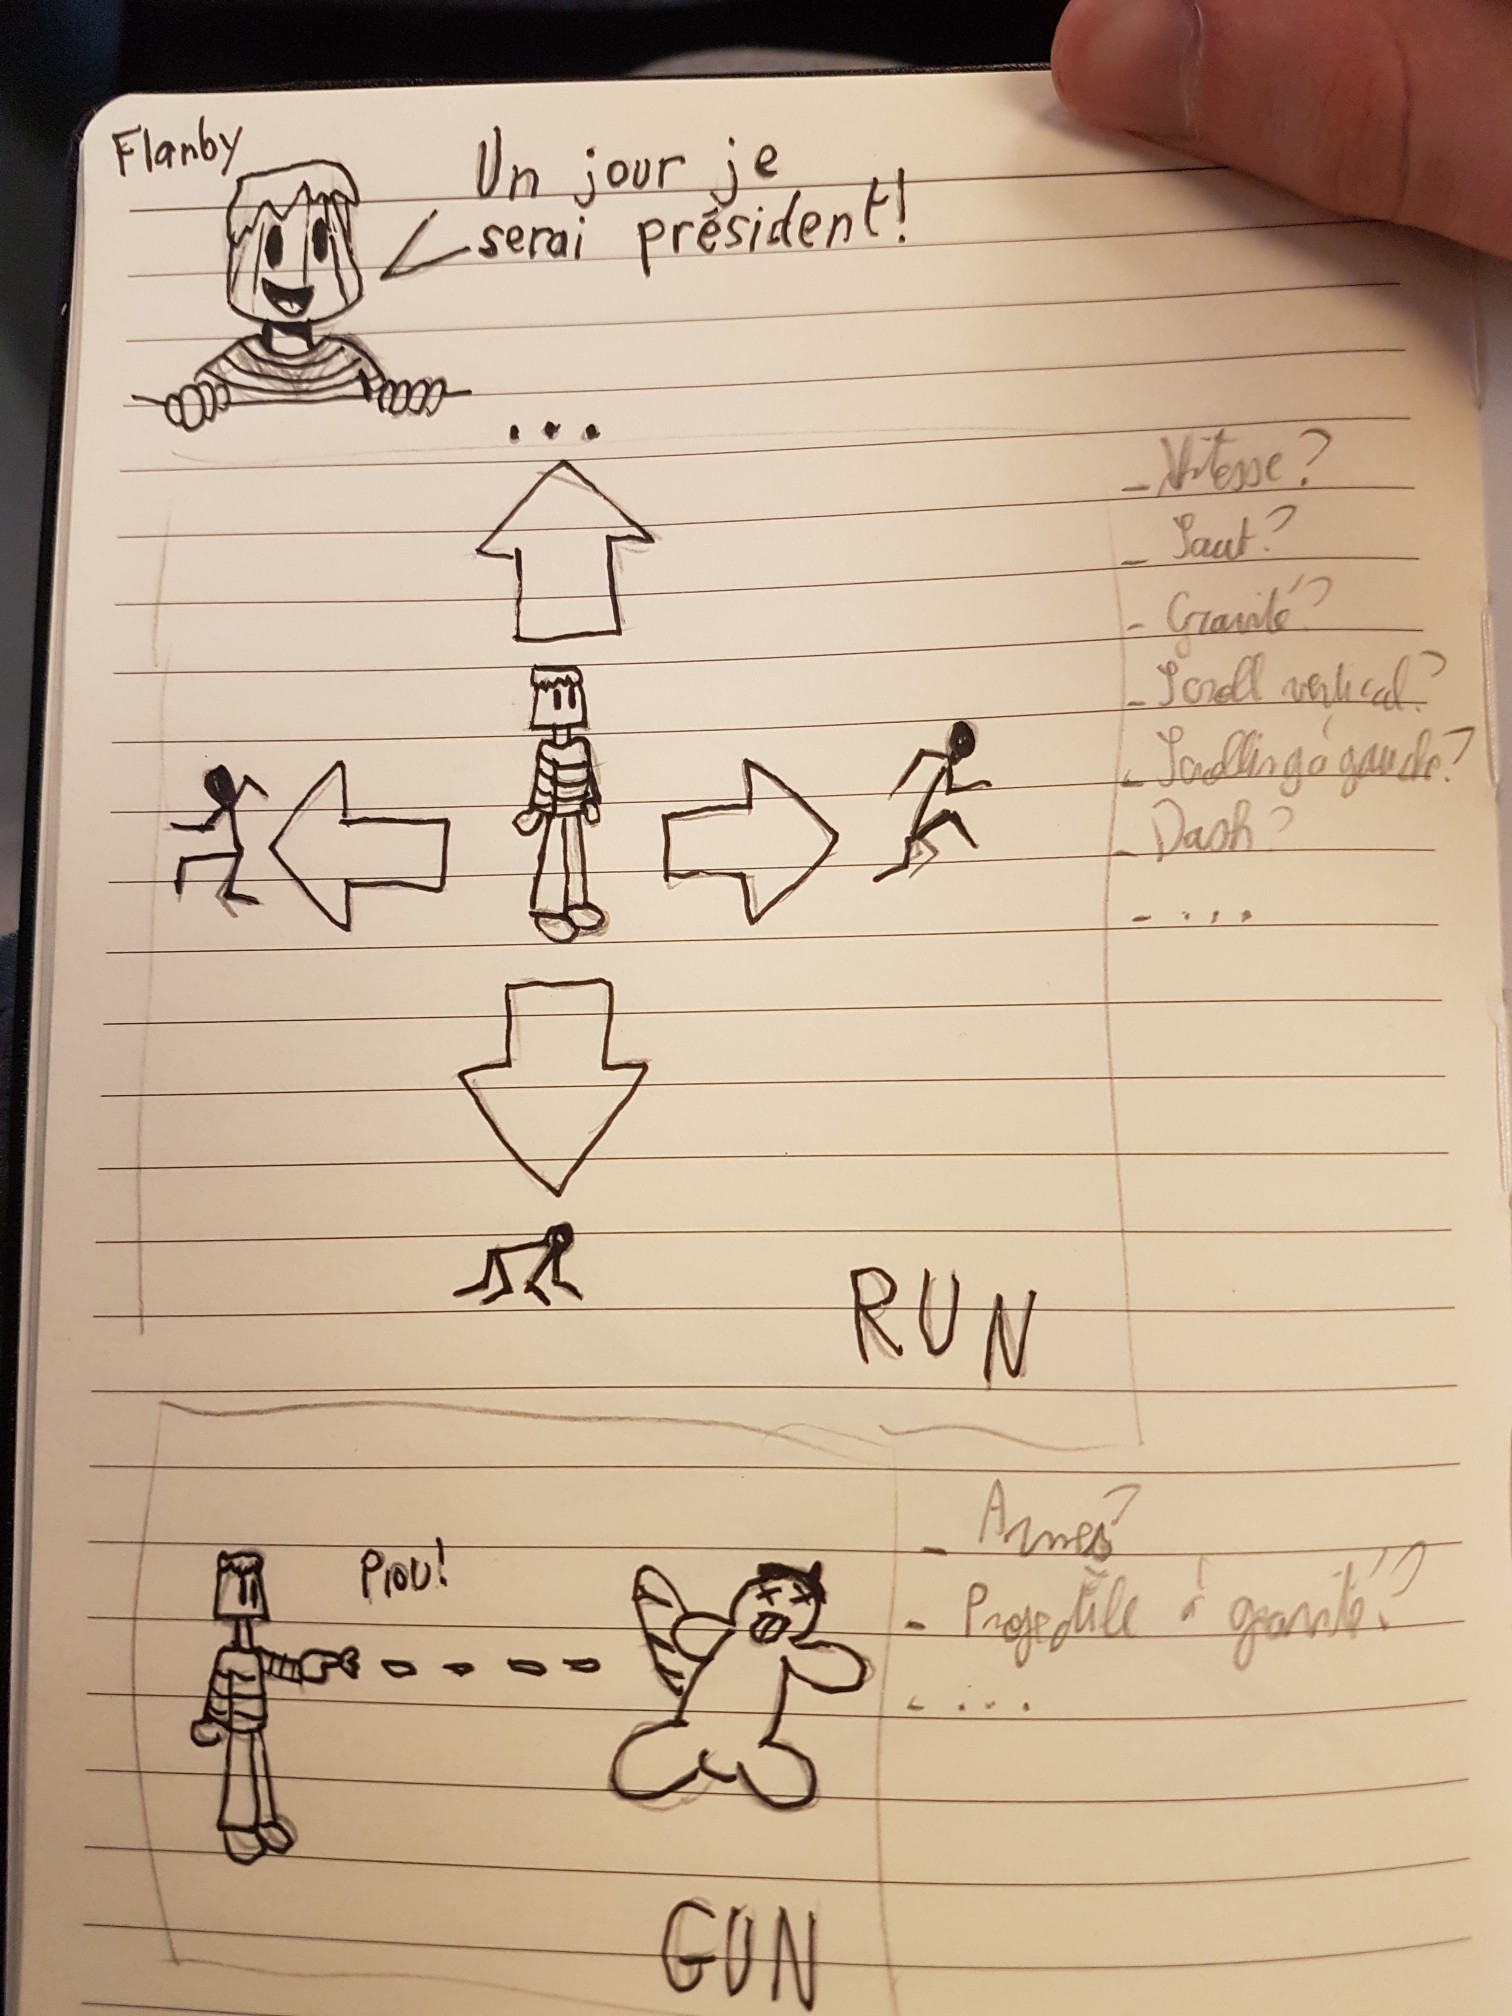 Flanby
Un jour je
serai président!
...
- Vitesse?
- Saut?
- Gravité?
- Scroll vertical?
- Scrolling à gauche?
- Dash?
- ...
RUN
- Armes?
Piou!
- Projectile à gravité?
- ...
GUN